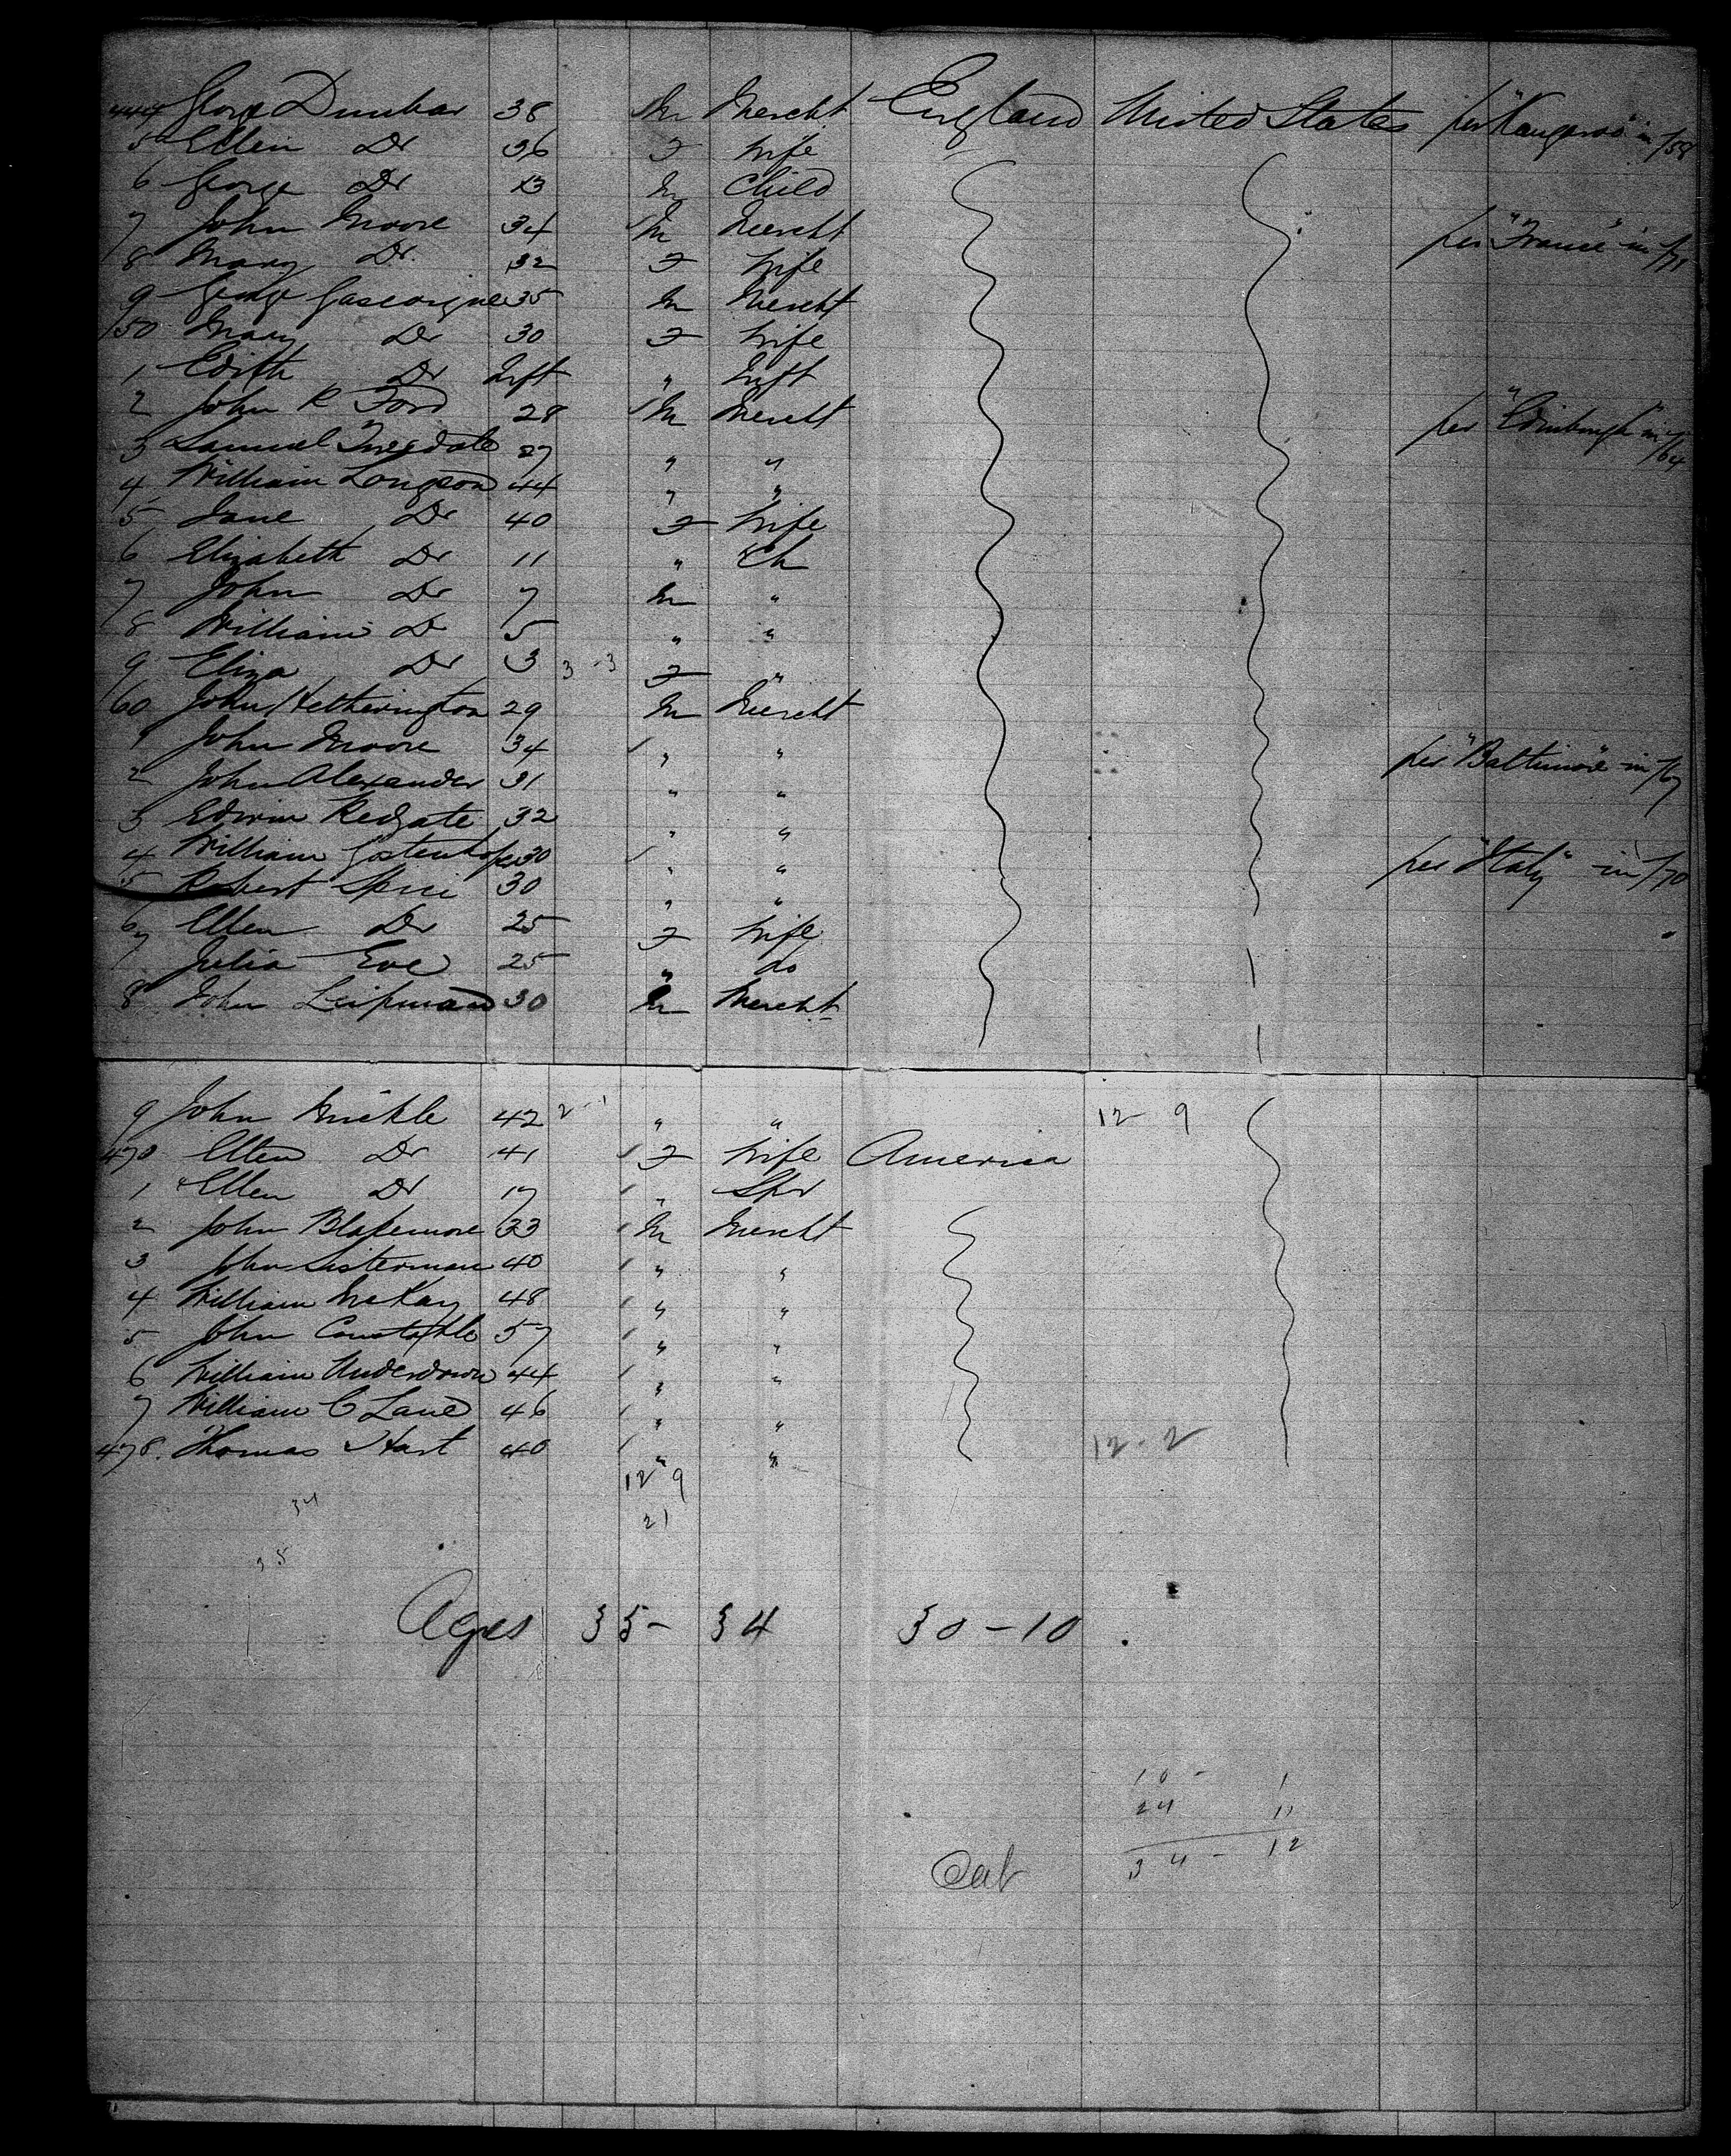 444 George Dunbar 38 M Mercht England United States per "Kangaroo" in /58
5 Ellen Do 36 F Wife
6 George Do 13 M Child
7 John Moore 34 M Mercht per "France" in /71
8 Mary Do. 32 F Wife
9 George Gascoigne 35 M Mercht
450 Mary Do 30 F Wife
1 Edith Do Inft " Inft
2 John R Ford 28 M Mercht per "Edinburgh" in /64
3 Samuel 27 " "
4 William Longson 44 " "
5 Jane Do 40 F Wife
6 Elizabeth Do 11 " Ch
7 John Do 7 M "
8 William Do 5 " "
9 Eliza Do 3 3-3 F "
60 John Hetherington 29 M Mercht
1 John Moore 34 " " per "Baltimore" in /67
2 John Alexander 31 " "
3 Edwin Redgate 32 " "
4 William 30 " " per "Italy" in /70
5 Robert 30 " "
6 Ellen Do 25 F Wife
7 Julia Eve 25 " do
8 John 30 M Mercht
9 John Mickle 42 2-1 " " 12 9
470 Ellen Do 41 F Wife America
1 Ellen Do 17 " Spr
2 John Blakemore 33 M Mercht
3 John Sisterman 40 " "
4 William McKay 48 " "
5 John Constable 57 " "
6 William Underdown 44 " "
7 William C Lane 46 " "
478. Thomas Hart 40 " " 12-2
12 9
34 21
35
Ages 35-34 30-10
10 - 1
24 11
34 - 12